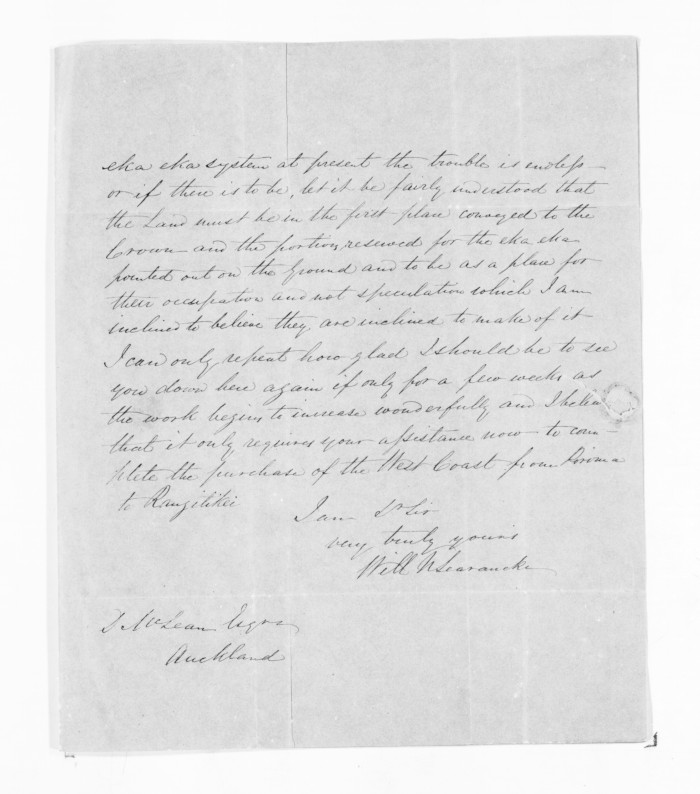 eka eka system at present the trouble is endless
or if there is to be, let it be fairly understood that
the Land must be in the first place conveyed to the
Crown and the portion reserved for the eka eka
pointed out on the Ground and to be as a place for
their occupation and not speculation which I am
inclined to believe they are inclined to make of it
I can only repeat how glad I should be to see
you down here again if only for a few weeks as
the work begins to increase wonderfully and I
that it only requires your assistance now to com-
plete the purchase of the West Coast from
to Rangitikei
I am Dr Sir
very truly yours
Will N Searancke
D McLean Esqre
Auckland